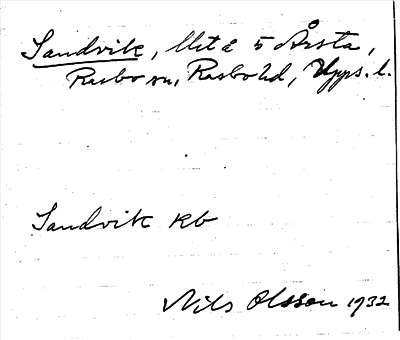 Sandvik, Utå 5 Årsta,
Rasbo sn, Rasbo hd, Upps. l.
Sandvik kb
Nils Olsson 1932